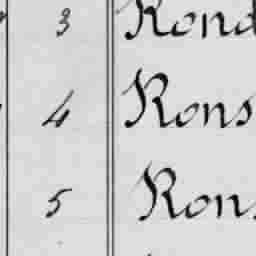 3 Rond
4 Rons
5 Rons